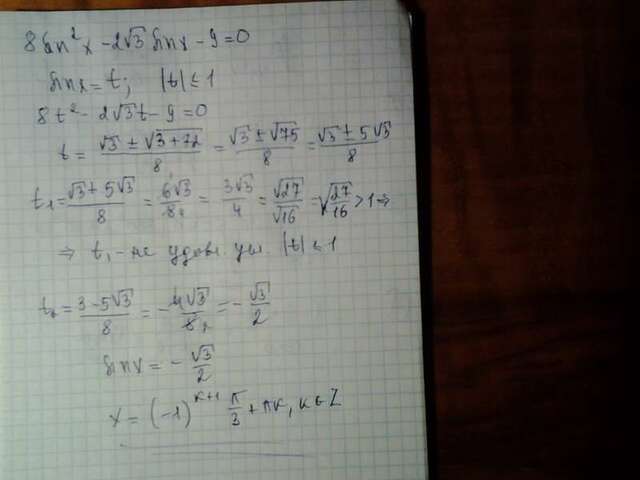 8sin²x - 2√3 sinx - 9 = 0
sinx = t; |t| ≤ 1
8t² - 2√3t - 9 = 0
t = (√3 ± √(3+72))/8 = (√3 ± √75)/8 = (√3 ± 5√3)/8
t₁ = (√3 + 5√3)/8 = 6√3/8 = 3√3/4 = √27/√16 = √(27/16) > 1 ⇒
⇒ t₁ - не удовл. усл. |t| ≤ 1
t₂ = (3 - 5√3)/8 = -4√3/8₂ = -√3/2
sinx = -√3/2
x = (-1)^(k+1) π/3 + πk, k ∈ Z